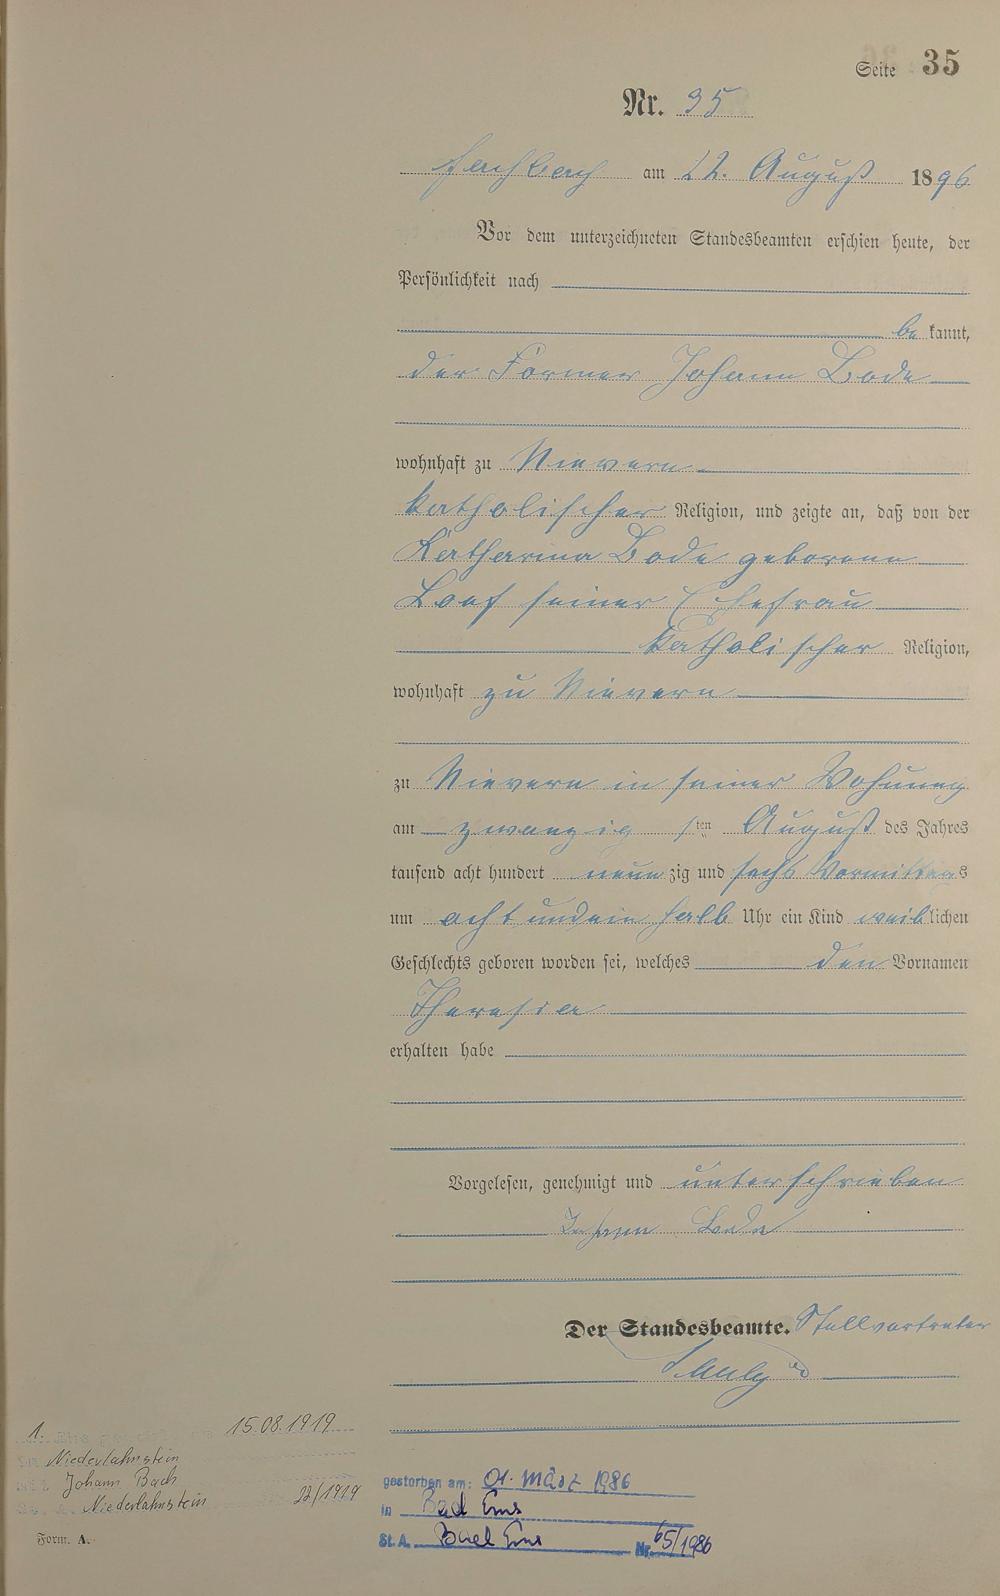 Seite 35
Nr. 35
Fachbach am 22. August 1896
Vor dem unterzeichneten Standesbeamten erschien heute, der
Persönlichkeit nach
bekannt,
der Former Johann Bode
wohnhaft zu Nievern
katholischer Religion, und zeigte an, daß von der
Katharina Bode geborene
Loef seiner Ehefrau
katholischer Religion,
wohnhaft zu Nievern
zu Nievern in seiner Wohnung
am zwanzigsten August des Jahres
tausend acht hundert neunzig und sechs Vormittags
um acht und ein halb Uhr ein Kind weiblichen
Geschlechts geboren worden sei, welches den Vornamen
Theresia
erhalten habe
Vorgelesen, genehmigt und unterschrieben
Johann Bode
Der Standesbeamte. Stellvertreter
1. Ehe 15.08.1919
in Niederlahnstein
mit Johann Bach
St. A. Niederlahnstein 22/1919
Form. A.
gestorben am: 01. März 1986
in Bad Ems
St. A. Bad Ems Nr. 65/1986